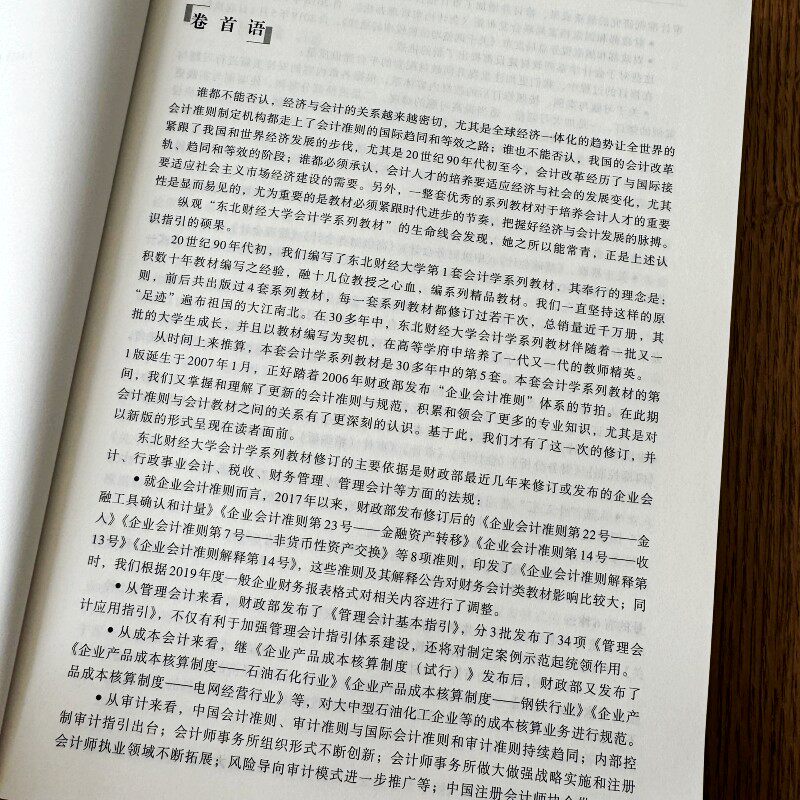 卷首语
谁都不能否认，经济与会计的关系越来越密切，尤其是全球经济一体化的趋势让全世界的
会计准则制定机构都走上了会计准则的国际趋同和等效之路；谁也不能否认，我国的会计改革
紧跟了我国和世界经济发展的步伐，尤其是20世纪90年代初至今，会计改革经历了与国际接
轨、趋同和等效的阶段；谁都必须承认，会计人才的培养要适应经济与社会的发展变化，尤其
要适应社会主义市场经济建设的需要。另外，一整套优秀的系列教材对于培养会计人才的重要
性是显而易见的，尤为重要的是教材必须紧跟时代进步的节奏，把握好经济与会计发展的脉搏。
纵观“东北财经大学会计学系列教材”的生命线会发现，她之所以能常青，正是上述认
识指引的硕果。
20世纪90年代初，我们编写了东北财经大学第1套会计学系列教材，其奉行的理念是：
积数十年教材编写之经验，融十几位教授之心血，编系列精品教材。我们一直坚持这样的原
则，前后共出版过4套系列教材，每一套系列教材都修订过若干次，总销量近千万册，其
“足迹”遍布祖国的大江南北。在30多年中，东北财经大学会计学系列教材伴随着一批又一
批的大学生成长，并且以教材编写为契机，在高等学府中培养了一代又一代的教师精英。
从时间上来推算，本套会计学系列教材是30多年中的第5套。本套会计学系列教材的第
1版诞生于2007年1月，正好踏着2006年财政部发布“企业会计准则”体系的节拍。在此期
间，我们又掌握和理解了更新的会计准则与规范，积累和领会了更多的专业知识，尤其是对
会计准则与会计教材之间的关系有了更深刻的认识。基于此，我们才有了这一次的修订，并
以新版的形式呈现在读者面前。
东北财经大学会计学系列教材修订的主要依据是财政部最近几年来修订或发布的企业会
计、行政事业会计、税收、财务管理、管理会计等方面的法规：
●就企业会计准则而言，2017年以来，财政部发布修订后的《企业会计准则第22号——金
融工具确认和计量》《企业会计准则第23号——金融资产转移》《企业会计准则第14号——收
入》《企业会计准则第7号——非货币性资产交换》等8项准则，印发了《企业会计准则解释第
13号》《企业会计准则解释第14号》，这些准则及其解释公告对财务会计类教材影响比较大；同
时，我们根据2019年度一般企业财务报表格式对相关内容进行了调整。
●从管理会计来看，财政部发布了《管理会计基本指引》，分3批发布了34项《管理会
计应用指引》，不仅有利于加强管理会计指引体系建设，还将对制定案例示范起统领作用。
●从成本会计来看，继《企业产品成本核算制度（试行）》发布后，财政部又发布了
《企业产品成本核算制度——石油石化行业》《企业产品成本核算制度——钢铁行业》《企业产
品成本核算制度——电网经营行业》等，对大中型石油化工企业等的成本核算业务进行规范。
●从审计来看，中国会计准则、审计准则与国际会计准则和审计准则持续趋同；内部控
制审计指引出台；会计师事务所组织形式不断创新；会计师事务所做大做强战略实施和注册
会计师执业领域不断拓展；风险导向审计模式进一步推广等；中国注册会计师协会